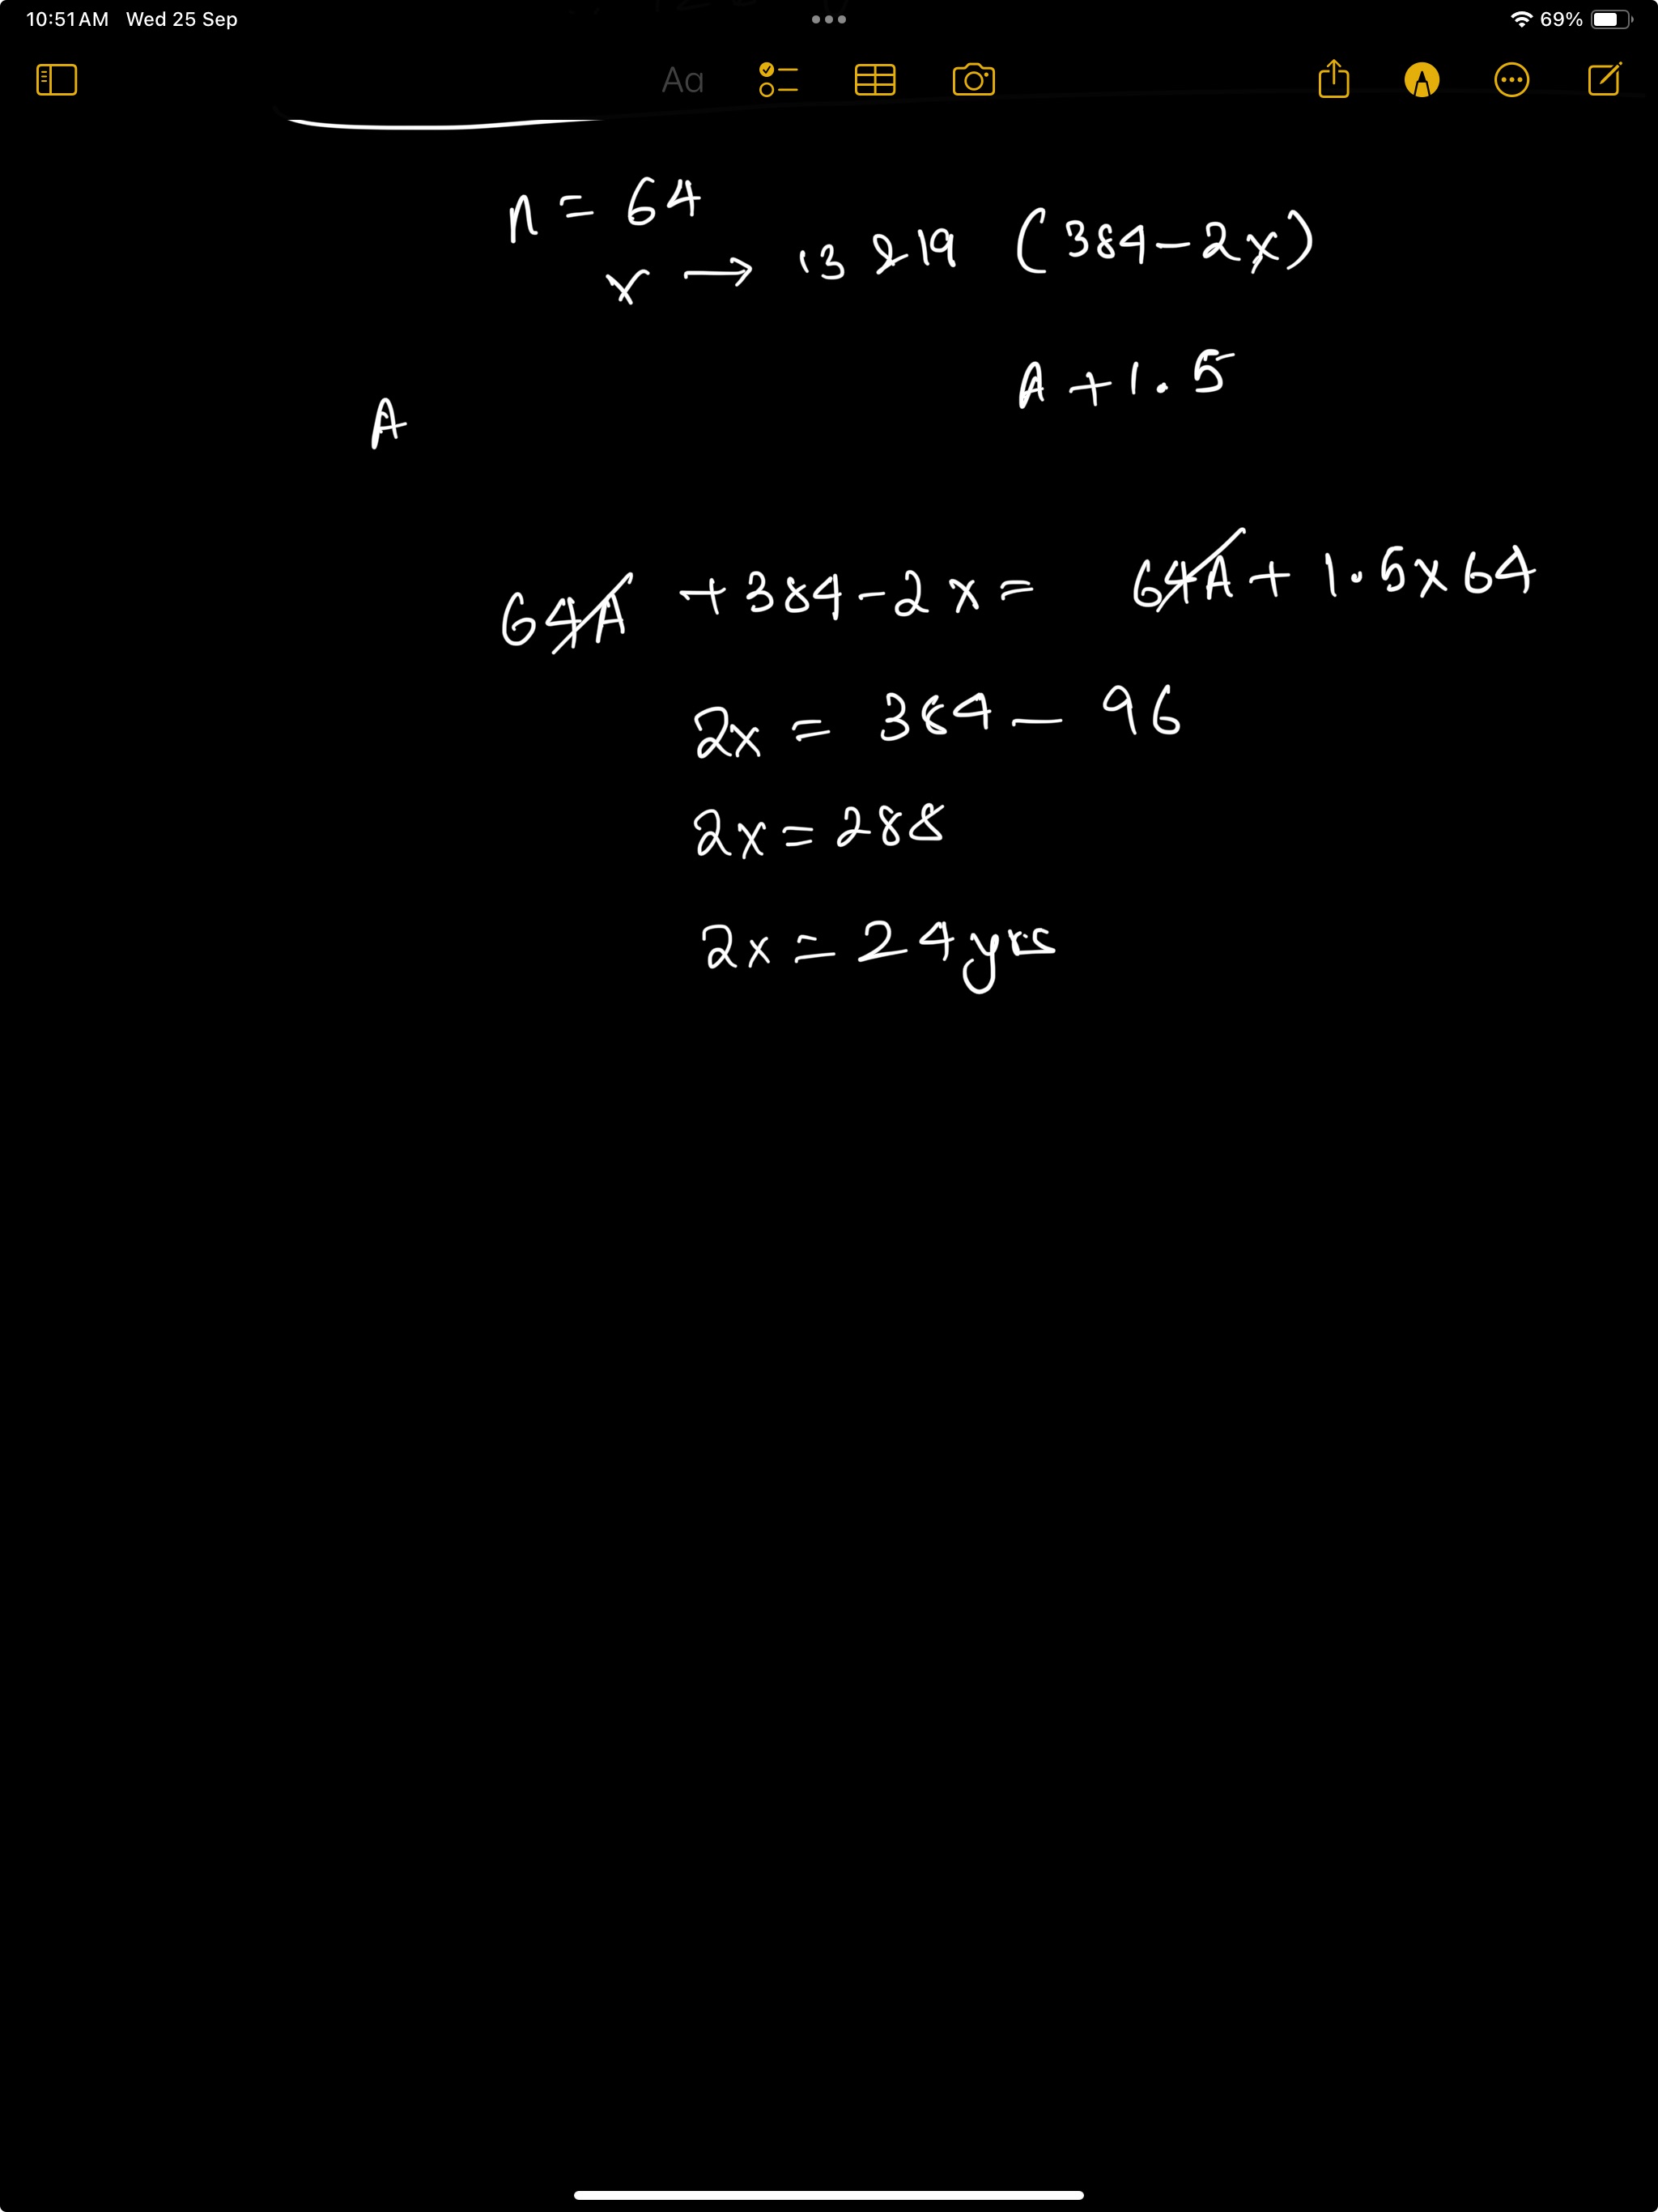 10:51 AM Wed 25 Sep
69%
Aa
n = 64
x → 13 & 19 (384-2x)
A + 1.5
A
64A + 384 - 2x = 64A + 1.5x64
2x = 384 - 96
2x = 288
2x = 24 yrs